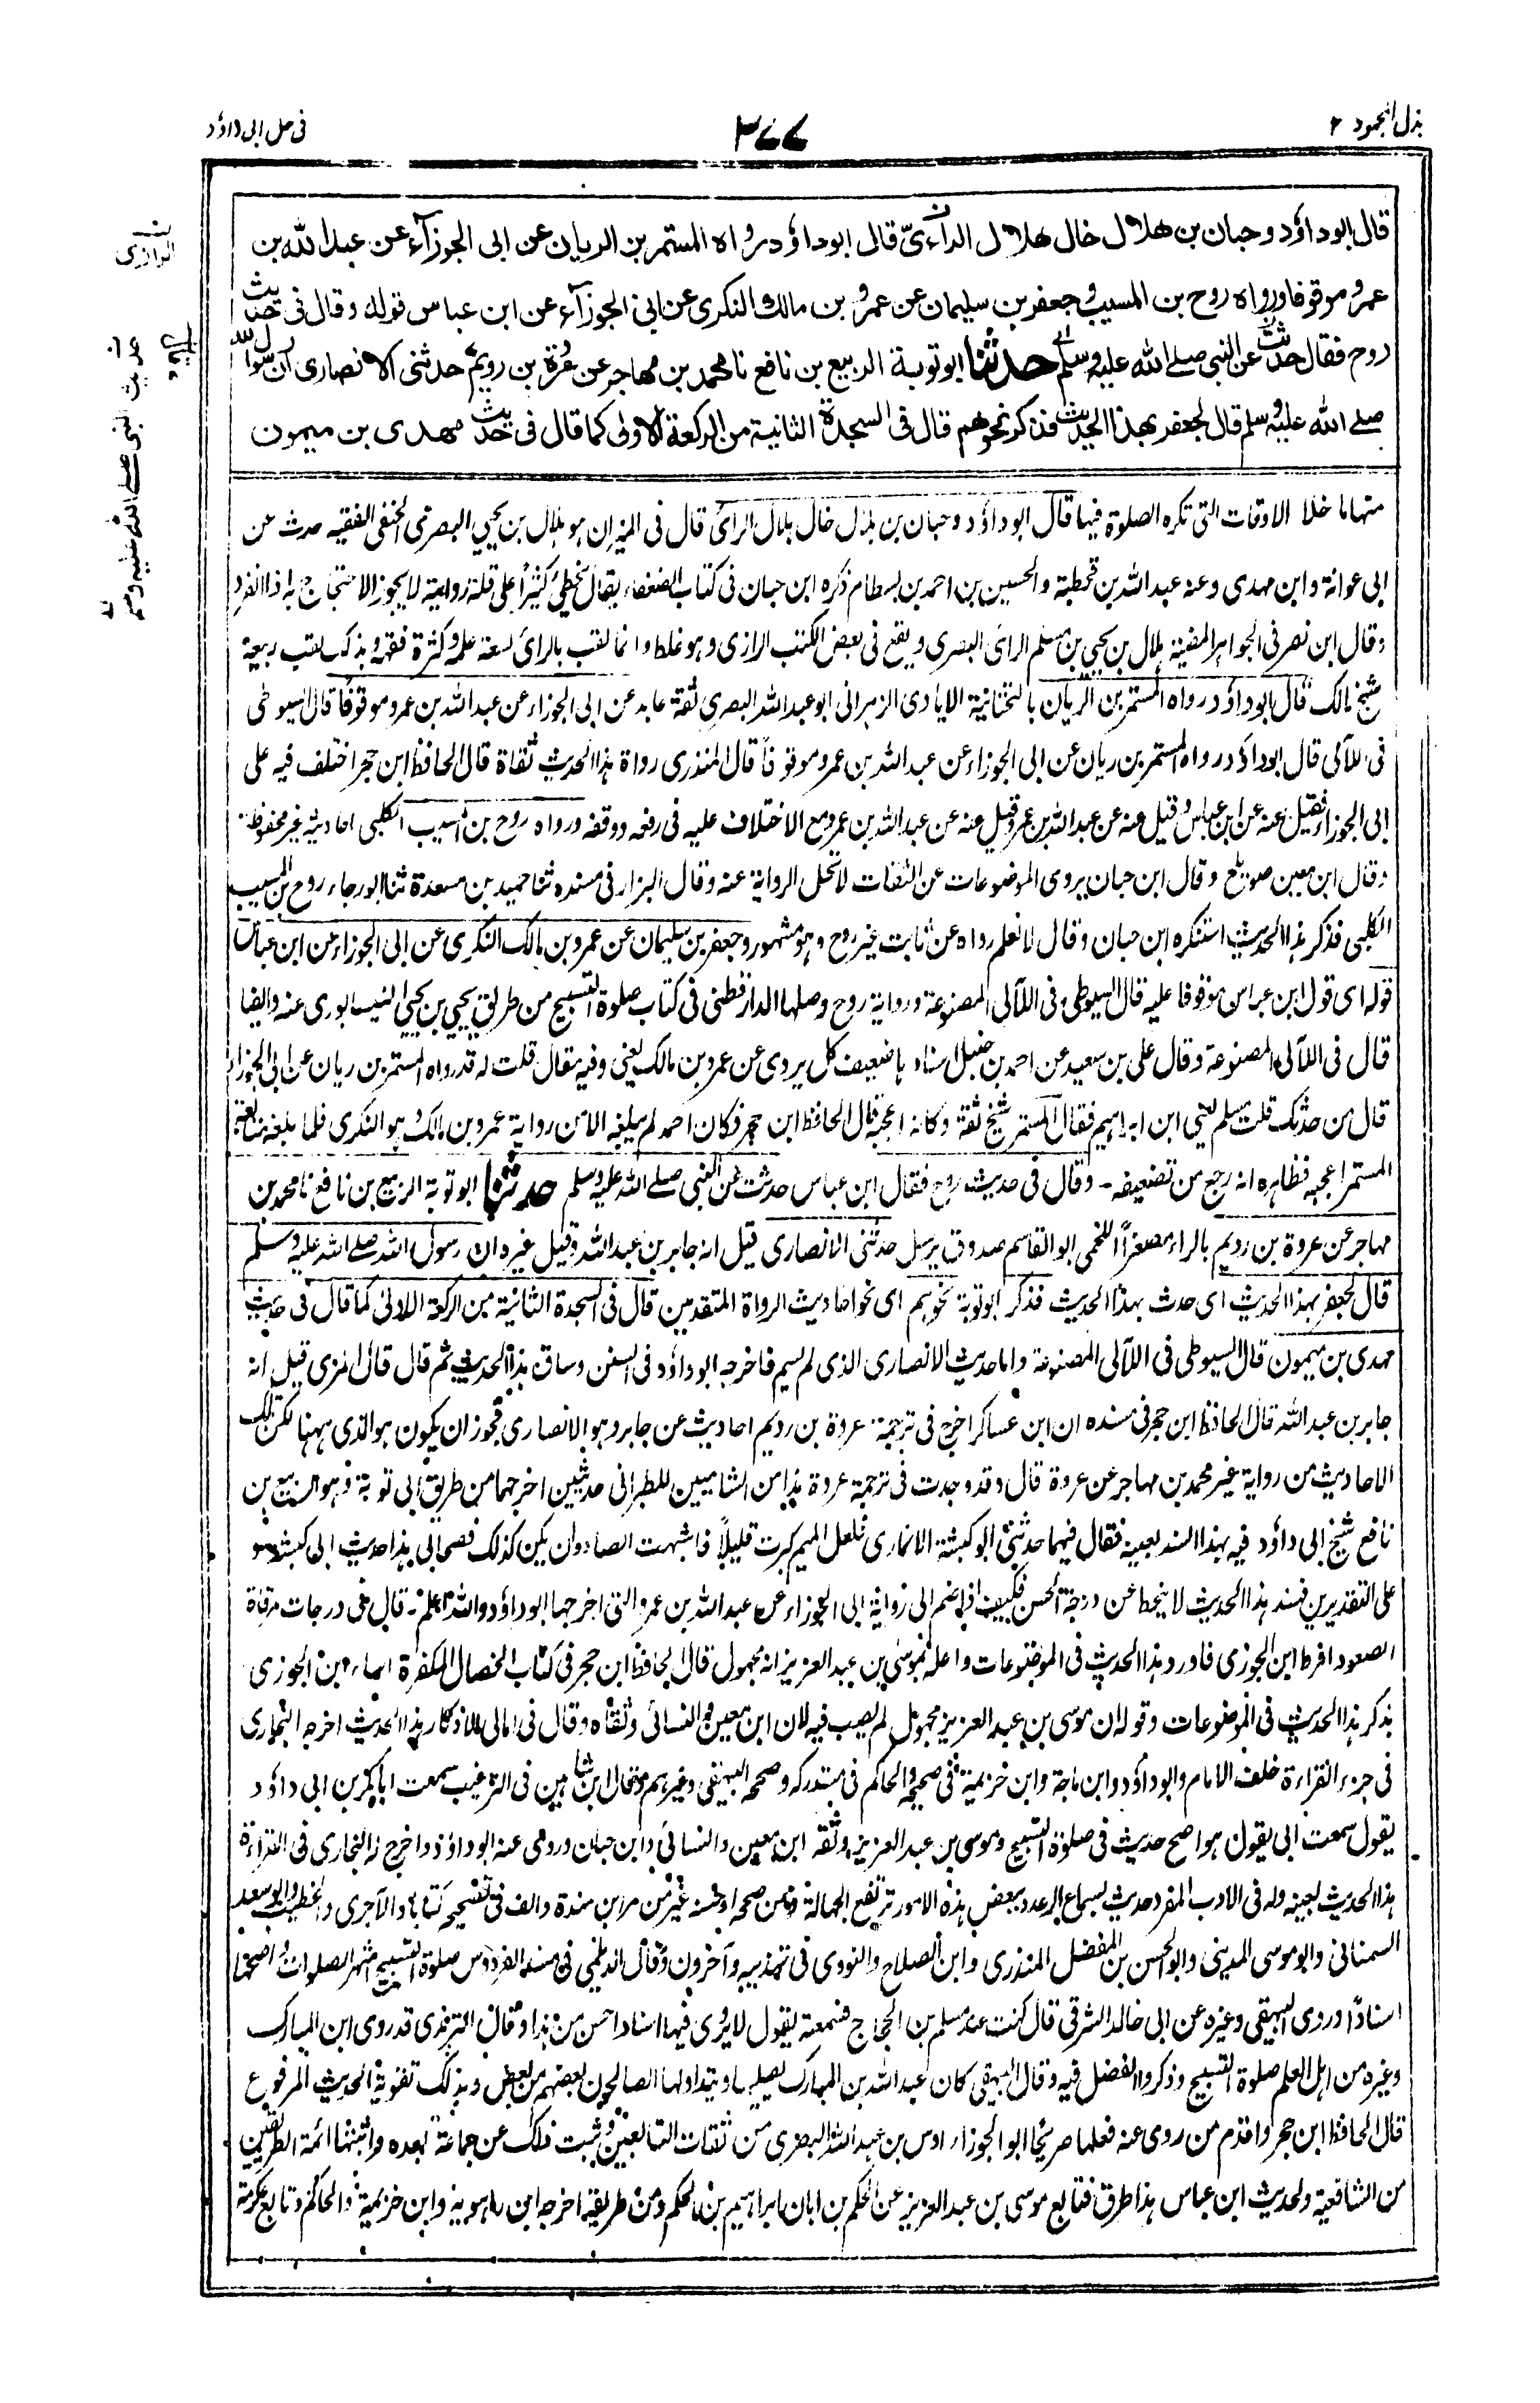 بذل المجهود ٢
٣٧٧
فی حل ابی داؤد
قال ابو داؤد وحبان بن هلال خال هلال الرائیّ قال ابو داؤد رواه المستمر بن الريان عن ابی الجوزآء عن عبد الله بن
عمرو موقوفا ورواه روح بن المسيب و جعفر بن سليمان عن عمرو بن مالك النكری عن ابی الجوزآء عن ابن عباس قوله وقال فی حديث
روح فقال حديث عن النبی صلے الله عليه وسلم حدثنا ابو توبة الربيع بن نافع نا محمد بن مهاجر عن عروة بن رويم حدثنی الانصاری ان رسول الله
صلے الله عليه وسلم قال لجعفر بهذا الحديث فذكر نحوهم قال فی السجدة الثانية من الركعة الاولی كما قال فی حديث مهدی بن ميمون
الرازی
حديث النبی صلے الله عليه وسلم
منها ما خلا الاوقات التی تكره الصلوة فيها قال ابو داؤد وحبان بن هلال خال هلال الرائی قال فی الميزان هو هلال بن يحيی البصری الحنفی الفقيه حدث عن
ابی عوانة وابن مهدی وعنه عبد الله بن قحطبة والحسين بن احمد بن بسطام ذكره ابن حبان فی كتاب الضعفاء يقال يخطئ كثيرا علی قلة روايته لا يجوز الاحتجاج به اذا انفرد
وقال ابن نصر فی الجواهر المضية هلال بن يحيی بن مسلم الرائی البصری ويقع فی بعض الكتب الرازی وهو غلط وانما لقب بالرائی لسعة علمه وكثرة فقهه وبذلك لقب ربيعة
شيخ مالك قال ابو داؤد رواه المستمر بن الريان بالتحتانية الايادی الزهرانی ابو عبد الله البصری ثقة عابد عن ابی الجوزاء عن عبد الله بن عمرو موقوفا قال السيوطی
فی اللآلی قال ابو داؤد رواه المستمر بن ريان عن ابی الجوزاء عن عبد الله بن عمرو موقوفا قال المنذری رواة هذا الحديث ثقاة قال الحافظ ابن حجر اختلف فيه علی
ابی الجوزاء فقيل عنه عن ابن عباس وقيل عنه عن عبد الله بن عمرو وقيل عنه عن عبد الله بن عمر مع الاختلاف عليه فی رفعه ووقفه ورواه روح بن المسيب الكلبی احاديثه غير محفوظة
وقال ابن معين صويلح وقال ابن حبان يروی الموضوعات عن الثقات لا تحل الرواية عنه وقال البزار فی مسنده ثنا حميد بن مسعدة ثنا ابو رجاء روح بن المسيب
الكلبی فذكر هذا الحديث استنكره ابن حبان وقال لا نعلم رواه عن ثابت غير روح وهو مشهور وجعفر بن سليمان عن عمرو بن مالك النكری عن ابی الجوزاء عن ابن عباس
قوله ای قول ابن عباس موقوفا عليه قال السيوطی فی اللآلی المصنوعة ورواية روح وصلها الدارقطنی فی كتاب صلوة التسبيح من طريق يحيی بن يحيی النيسابوری عنه وايضا
قال فی اللآلی المصنوعة وقال علی بن سعيد عن احمد بن حنبل اسنادها ضعيف كل يروی عن عمرو بن مالك يعنی وفيه مقال قلت له قد رواه المستمر بن ريان عن ابی الجوزاء
قال من حدثك قلت مسلم يعنی ابن ابراهيم فقال المستمر شيخ ثقة وكانه اعجبه قال الحافظ ابن حجر فكان احمد لم يبلغه الا من رواية عمرو بن مالك وهو النكری فلما بلغه متابعة
المستمر اعجبه فظاهره انه رجع من تضعيفه - وقال فی حديث روح فقال ابن عباس حدثت عن النبی صلے الله عليه وسلم حدثنا ابو توبة الربيع بن نافع نا محمد بن
مهاجر عن عروة بن رويم بالراء مصغرا اللخمی ابو القاسم صدوق يرسل حدثنی الانصاری قيل انه جابر بن عبد الله وقيل غيره ان رسول الله صلے الله عليه وسلم
قال لجعفر بهذا الحديث ای حدث بهذا الحديث فذكر ابو توبة نحوهم ای نحو احاديث الرواة المتقدمين قال فی السجدة الثانية من الركعة الاولی كما قال فی حديث
مهدی بن ميمون قال السيوطی فی اللآلی المصنوعة واما حديث الانصاری الذی لم يسم فاخرجه ابو داؤد فی السنن وساق بهذا الحديث ثم قال قال المزی قيل انه
جابر بن عبد الله قال الحافظ ابن حجر فی مسنده ان ابن عساكر اخرج فی ترجمة عروة بن رويم احاديث عن جابر وهو الانصاری فجوز ان يكون هو الذی ههنا لكن تلك
الاحاديث من رواية غير محمد بن مهاجر عن عروة قال وقد وجدت فی ترجمة عروة هذا من الشاميين للطبرانی حديثين اخرجهما من طريق ابی توبة وهو الربيع بن
نافع شيخ ابی داؤد فيه بهذا السند بعينه فقال فيهما حدثنی ابو كبشة الانماری فلعل الميم كبرت قليلا فاشبهت الصاد وان يكن كذلك فصحابی هذا حديث ابی كبشة وهو
علی التقديرين فسند هذا الحديث لا ينحط عن درجة الحسن فكيف اذا ضم الی رواية ابی الجوزاء عن عبد الله بن عمرو التی اخرجها ابو داؤد والله اعلم - قال فی درجات مرقاة
الصعود افرط ابن الجوزی فاورد هذا الحديث فی الموضوعات واعله بموسی بن عبد العزيز انه مجهول قال الحافظ ابن حجر فی كتاب الخصال المكفرة اساء ابن الجوزی
بذكر هذا الحديث فی الموضوعات وقوله ان موسی بن عبد العزيز مجهول لم يصب فيه لان ابن معين والنسائی وثقاه وقال فی امالی الاذكار هذا الحديث اخرجه البخاری
فی جزء القراءة خلف الامام وابو داؤد وابن ماجة وابن خزيمة فی صحيحه والحاكم فی مستدركه وصححه البيهقی وغيرهم وقال ابن شاهين فی الترغيب سمعت ابا بكر بن ابی داؤد
يقول سمعت ابی يقول هو اصح حديث فی صلوة التسبيح وموسی بن عبد العزيز وثقه ابن معين والنسائی وابن حبان وروی عنه ابو داؤد واخرج له البخاری فی القراءة
هذا الحديث بعينه وله فی الادب المفرد حديث بسماع الرعد وببعض هذه الامور ترتفع الجهالة وممن صححه او حسنه غير من مر ابن مندة والف فی تصحيحه كتابا والآجری والخطيب وابو سعد
السمعانی وابو موسی المدينی وابو الحسن بن المفضل والمنذری وابن الصلاح والنووی فی تهذيبه وآخرون وقال الديلمی فی مسند الفردوس صلوة التسبيح اشهر الصلوات واصحها
اسنادا وروی البيهقی وغيره عن ابی حامد الشرقی قال كنت عند مسلم بن الحجاج فسمعته يقول لا يروی فيها اسناد احسن من هذا وقال الترمذی قد روی ابن المبارك
وغيره من اهل العلم صلوة التسبيح وذكروا الفضل فيه وقال البيهقی كان عبد الله بن المبارك يصليها ويتداولها الصالحون بعضهم من بعض وبذلك تقوية الحديث المرفوع
قال الحافظ ابن حجر واقدم من روی عنه فعلها صريحا ابو الجوزاء اوس بن عبد الله البصری من ثقات التابعين وثبت ذلك عن جماعة بعده واثبتها ائمة الطريقين
من الشافعية ولحديث ابن عباس هذا طرق فتابع موسی بن عبد العزيز عن الحكم بن ابان ابراهيم بن الحكم ومن طريقه اخرجه ابن راهويه وابن خزيمة والحاكم وتابع عكرمة